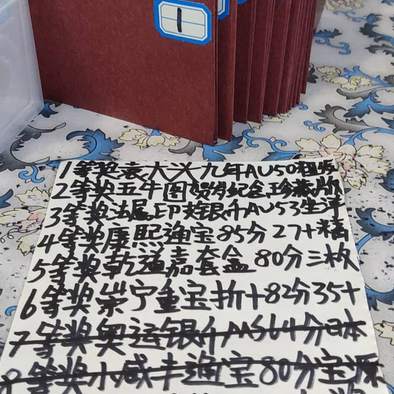 1
1等奖袁大头九年AU50粗发
2等奖五牛图贺岁纪念珍藏册
3等奖法属印支银币AU53坐洋
4等奖康熙通宝85分27+福
5等奖乾隆嘉套盒80分三枚
6等奖崇宁重宝折十82分35+
7等奖奥运银币MS64分日本
8等奖小咸丰通宝80分宝源